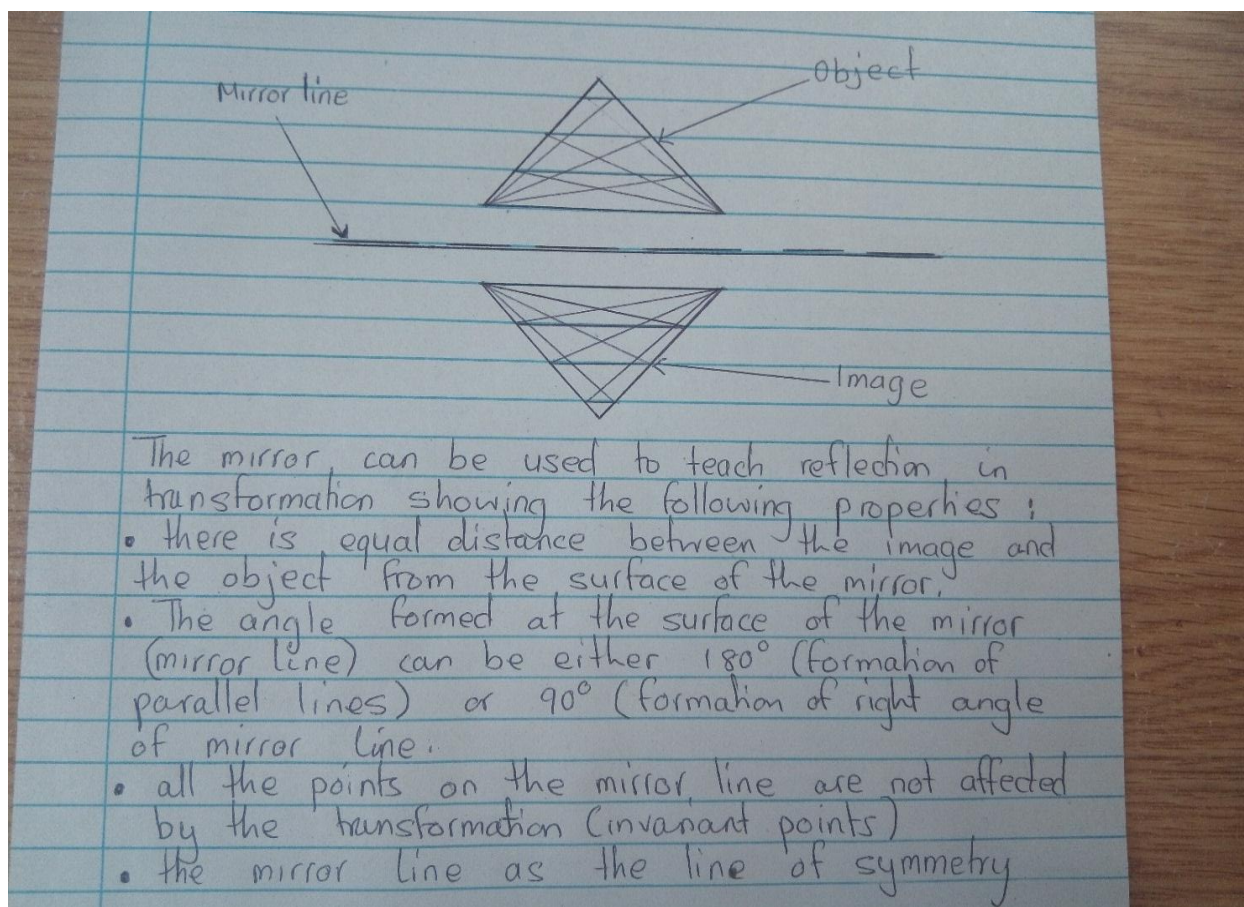 Mirror line
Object
Image
The mirror can be used to teach reflection in
transformation showing the following properties :
• there is equal distance between the image and
the object from the surface of the mirror.
• The angle formed at the surface of the mirror
(mirror line) can be either 180° (formation of
parallel lines) or 90° (formation of right angle
of mirror line.
• all the points on the mirror line are not affected
by the transformation (invariant points)
• the mirror line as the line of symmetry